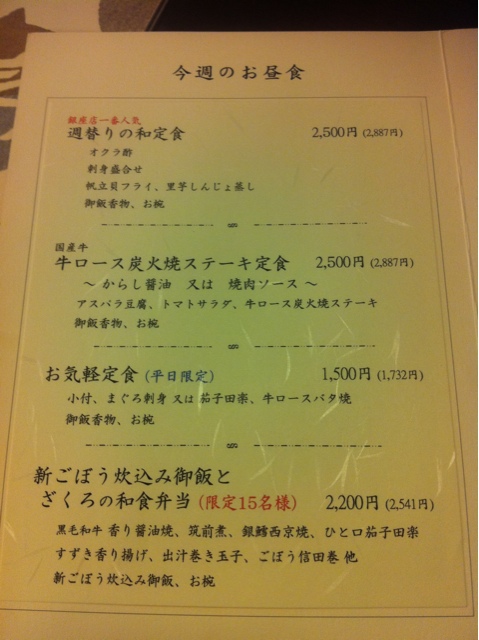 今週のお昼食
銀座店一番人気
週替りの和定食 2,500円 (2,887円)
オクラ酢
刺身盛合せ
帆立貝フライ、里芋しんじょ蒸し
御飯香物、お椀
国産牛
牛ロース炭火焼ステーキ定食 2,500円 (2,887円)
～ からし醤油 又は 焼肉ソース ～
アスパラ豆腐、トマトサラダ、牛ロース炭火焼ステーキ
御飯香物、お椀
お気軽定食 (平日限定) 1,500円 (1,732円)
小付、まぐろ刺身 又は 茄子田楽、牛ロースバタ焼
御飯香物、お椀
新ごぼう炊込み御飯と
ざくろの和食弁当 (限定15名様) 2,200円 (2,541円)
黒毛和牛 香り醤油焼、筑前煮、銀鱈西京焼、ひと口茄子田楽
すずき香り揚げ、出汁巻き玉子、ごぼう信田巻 他
新ごぼう炊込み御飯、お椀